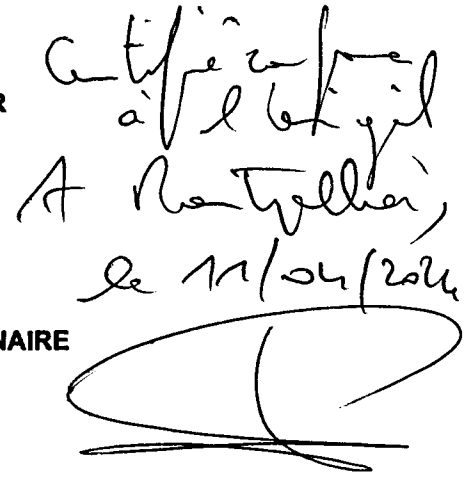 Certifié conforme
R
à l'original
A Montpellier,
le 11/04/2024
NAIRE